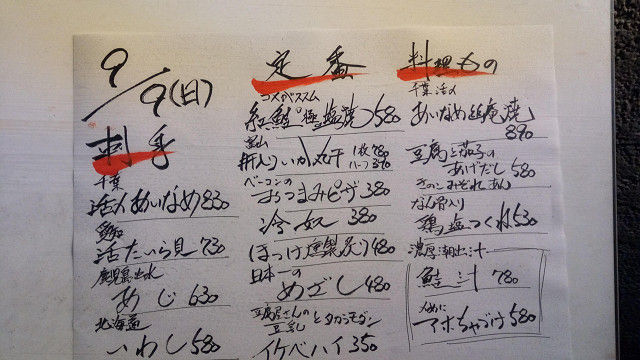 9/9(日)
刺身
千葉
活〆あいなめ 830
愛知
活たいら貝 730
鹿児島出水
あじ 630
北海道
いわし 580
定番
コメがススム
紅鮭極塩焼 580
富山
肝入りいか丸干 1枚780
ハーフ390
ベーコンの
おつまみピザ 380
冷奴 380
ほっけ燻製炙り 480
日本一の
めざし 480
豆腐屋さんの
豆乳と
イケベハイ 350
料理もの
千葉活〆
あいなめ幽庵焼
890
豆腐と茄子の
あげだし 580
きのこみぞれあん
なん骨入り
鶏塩つくね 530
濃厚潮出汁
鮭汁 780
〆めに
アホちゃづけ 580